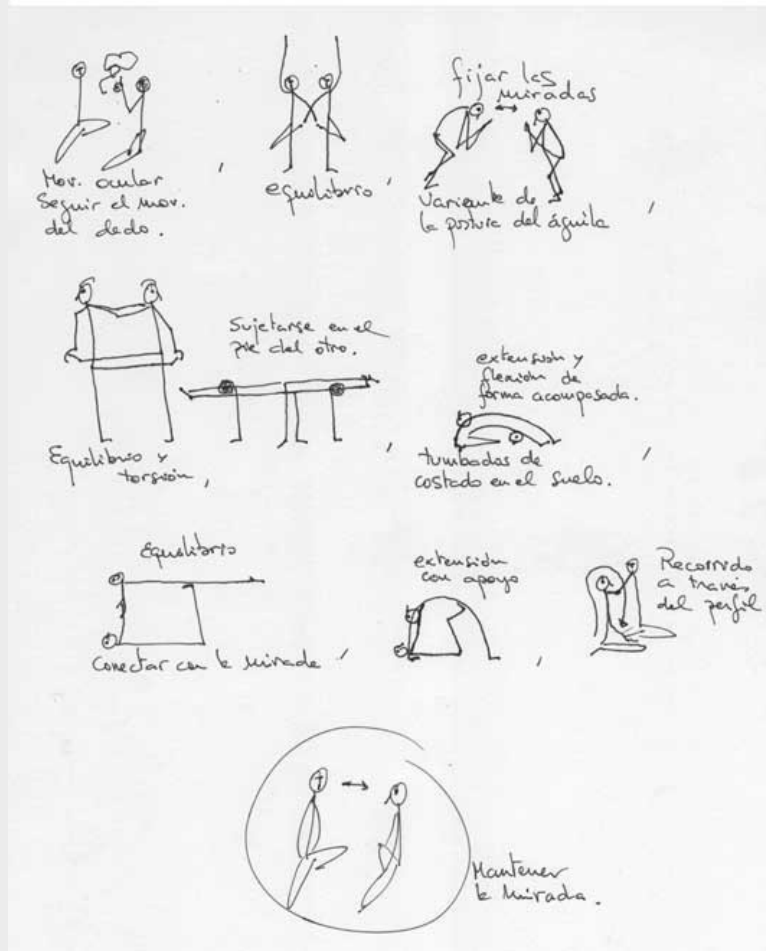 Mov. ocular
Seguir el mov.
del dedo.
,
equilibrio,
fijar las
miradas
Variante de
la postura del águila
,
Equilibrio y
torsión,
Sujetarse en el
pie del otro.
,
extensión y
flexión de
forma acompasada.
tumbados de
costado en el suelo.
,
Equilibrio
Conectar con la mirada,
extensión
con apoyo
,
Recorrido
a través
del perfil
Mantener
la mirada.